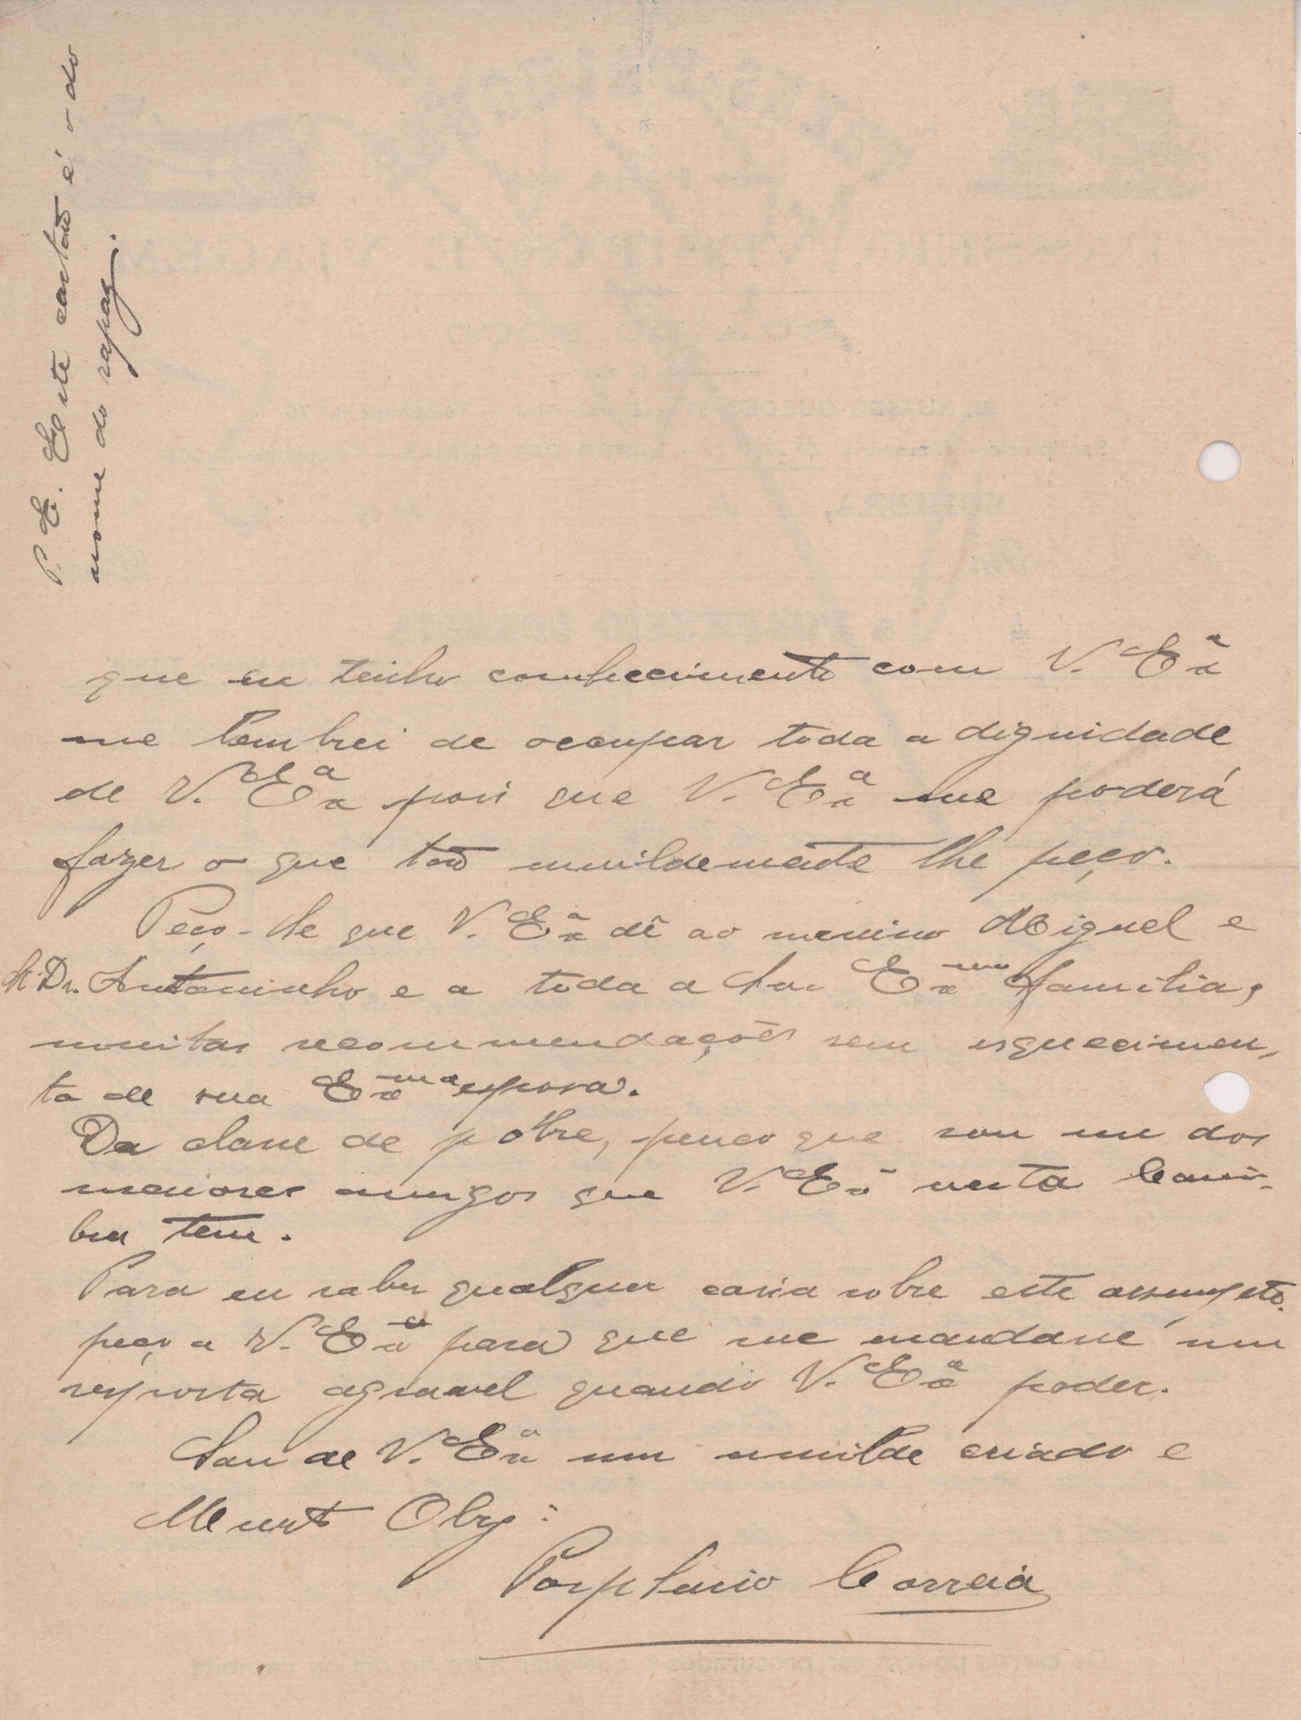 P. E. Este cartão é o do
nome do rapaz.
que eu tenho conhecimento com V. Exª
me lembrei de ocupar toda a dignidade
de V. Exª pois que V. Exª me poderá
fazer o que tão umildemente lhe peço.
Peço-lhe que V. Exª dê ao menino Miguel e
Sr. Dr. Antoninho e a toda a Sua Exma familia,
muitas recommendações sem esquecimen,
to de sua Exma esposa.
Da classe de pôbre, penso que sou um dos
maiores amigos que V. Exª nesta Coim-
bra tem.
Para eu saber qualquer coisa sobre este assumpto.
peço a V. Exª para que me mandasse um
resposta agravel quando V. Exª poder.
Sou de V. Exª um umilde criado e
Muito Obrg:
Correia